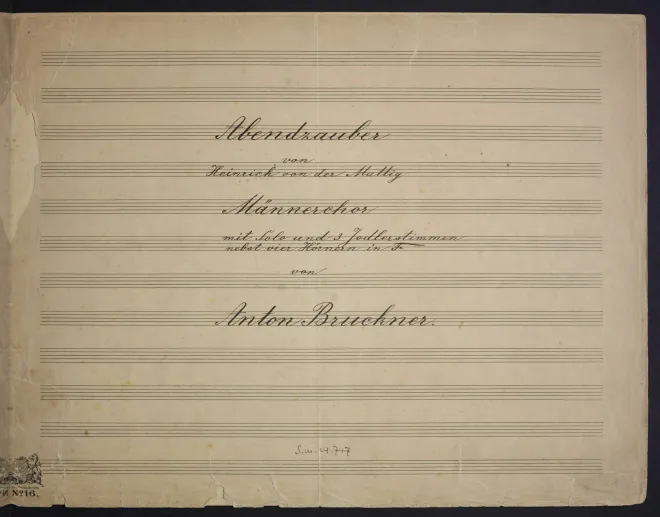 Abendzauber
von
Heinrich von der Mattig
Männerchor
mit Solo und 3 Jodlerstimmen
nebst vier Hörnern in F
von
Anton Bruckner.
Nº 16.